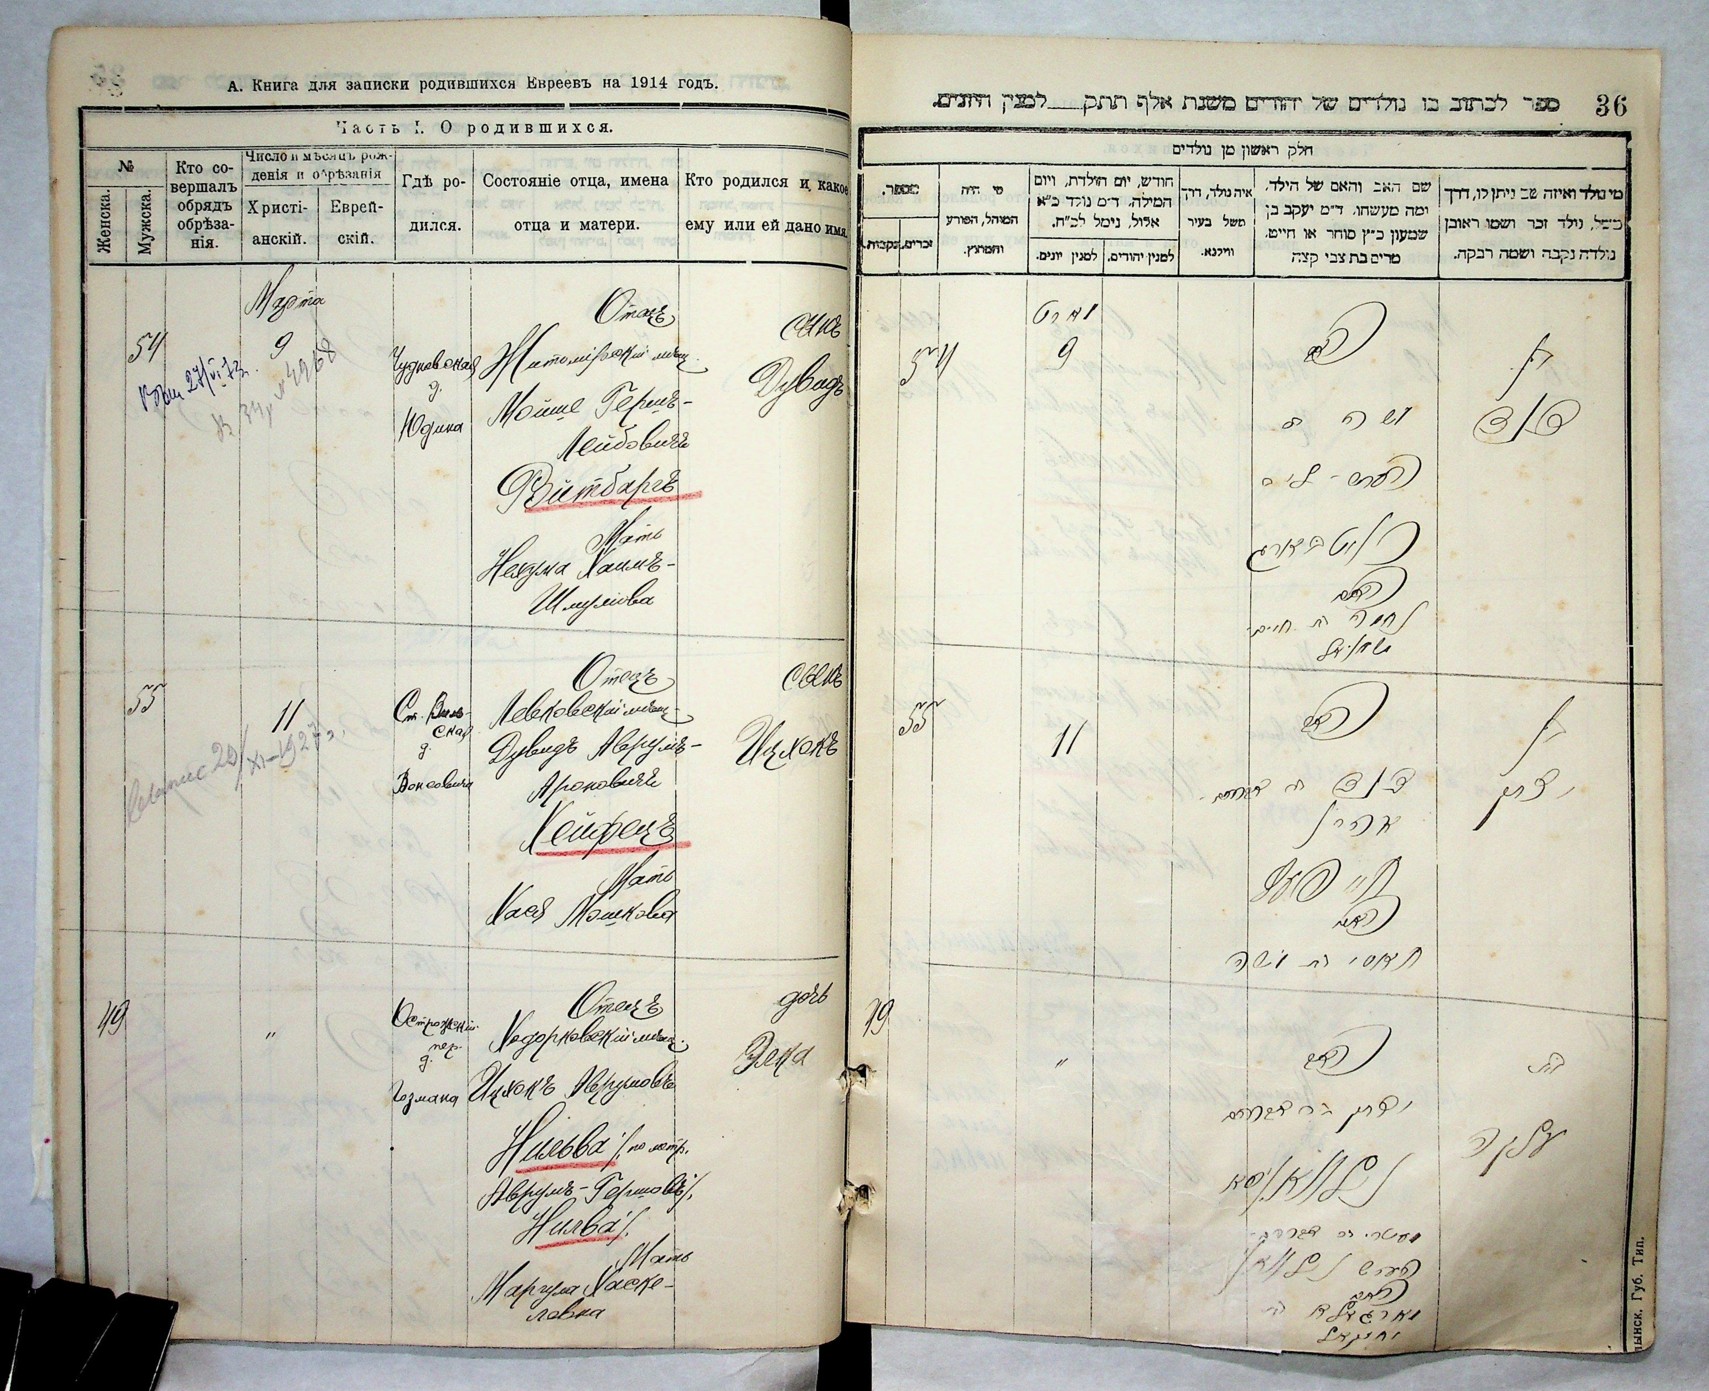 А. Книга для записки родившихся Евреевъ на 1914 годъ.
Часть I. О родившихся.
№
Женска.
Мужска.
Кто со-
вершалъ
обрядъ
обрѣза-
нія.
Число и мѣсяцъ рож-
денія и обрѣзанія
Христі-
анскій.
Еврей-
скій.
Гдѣ ро-
дился.
Состояніе отца, имена
отца и матери.
Кто родился и какое
ему или ей дано имя.
Марта
54
9
Чудновская
д.
Юдина
Отецъ
Житомірскій мѣщ.
Мойше Гершъ-
Лейбовичъ
Вітбаргъ
Мать
Нехума Хаимъ-
Шмулiова
сынъ
Дувидъ
55
11
Ст. Виль-
ская
д.
Отецъ
Левковскій мѣщ.
Дувидъ Аврумъ-
Ароновичъ
Хейфецъ
Мать
Хася Мошкова
сынъ
Ицхокъ
49
"
Острожскій
пер.
д.
Гезмана
Отецъ
Ходорковскій мѣщ.
Ицхокъ Аврумовъ
Нильва /по метр.
Аврумъ-Гершовъ/.
Нилва/.
Мать
Маргуля Хаске-
левна
дочь
Элка
ספר לכתוב בו נולדים של יהודים משנת אלף תתק למנין היונים.
36
חלק ראשון מן נולדים
מי נולד ואיזה שם ניתן לו, דרך
משל, נולד זכר ושמו ראובן
נולדה נקבה ושמה רבקה.
שם האב והאם של הילד,
ומה מעשהו. ד״מ יעקב בן
שמעון כ״ץ סוחר או חייט.
מרים בת צבי קצה
איה נולד, דרך
משל בעיר
ווילנא.
חודש, יום הולדת, ויום
המילה. ד״מ נולד כ״א
אלול, נימל לכ״ח.
למנין יהודים.
למנין יונים.
מי היה
המוהל, הפורע
והמוצץ.
מספר.
זכרים.
נקבות.
מארט
54
9
האב
משה ב
הערש - ליב
וויטבארג
האם
נחמה בת חיים-
שמואל
בן
דוד
55
11
האב
דוד בר אברהם-
אהרן
חייפעץ
האם
חאסי בת משה
בן
יצחק
49
"
האב
יצחק בר אברהם
האם
יחזקאל
בת
עלקה
Губ. Тип.